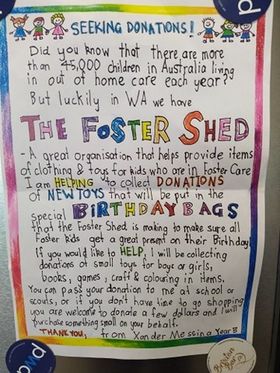 SEEKING DONATIONS!
Did you know that there are more
than 45,000 children in Australia living
in out of home care each year?
But luckily in WA we have
THE FOSTER SHED
- A great organisation that helps provide items
of clothing & toys for kids who are in Foster Care
I am HELPING to collect DONATIONS
of NEW TOYS that will be put in the
special BIRTHDAY BAGS
that the Foster Shed is making to make sure all
Foster kids get a great present on their Birthday
If you would like to HELP, I will be collecting
donations of small toys for boys or girls,
books, games, craft & colouring in items.
You can pass your donation to me at school or
scouts, or if you don't have time to go shopping
you are welcome to donate a few dollars and I will
purchase something small on your behalf.
THANKYOU, from Xander Messina Year
pwd